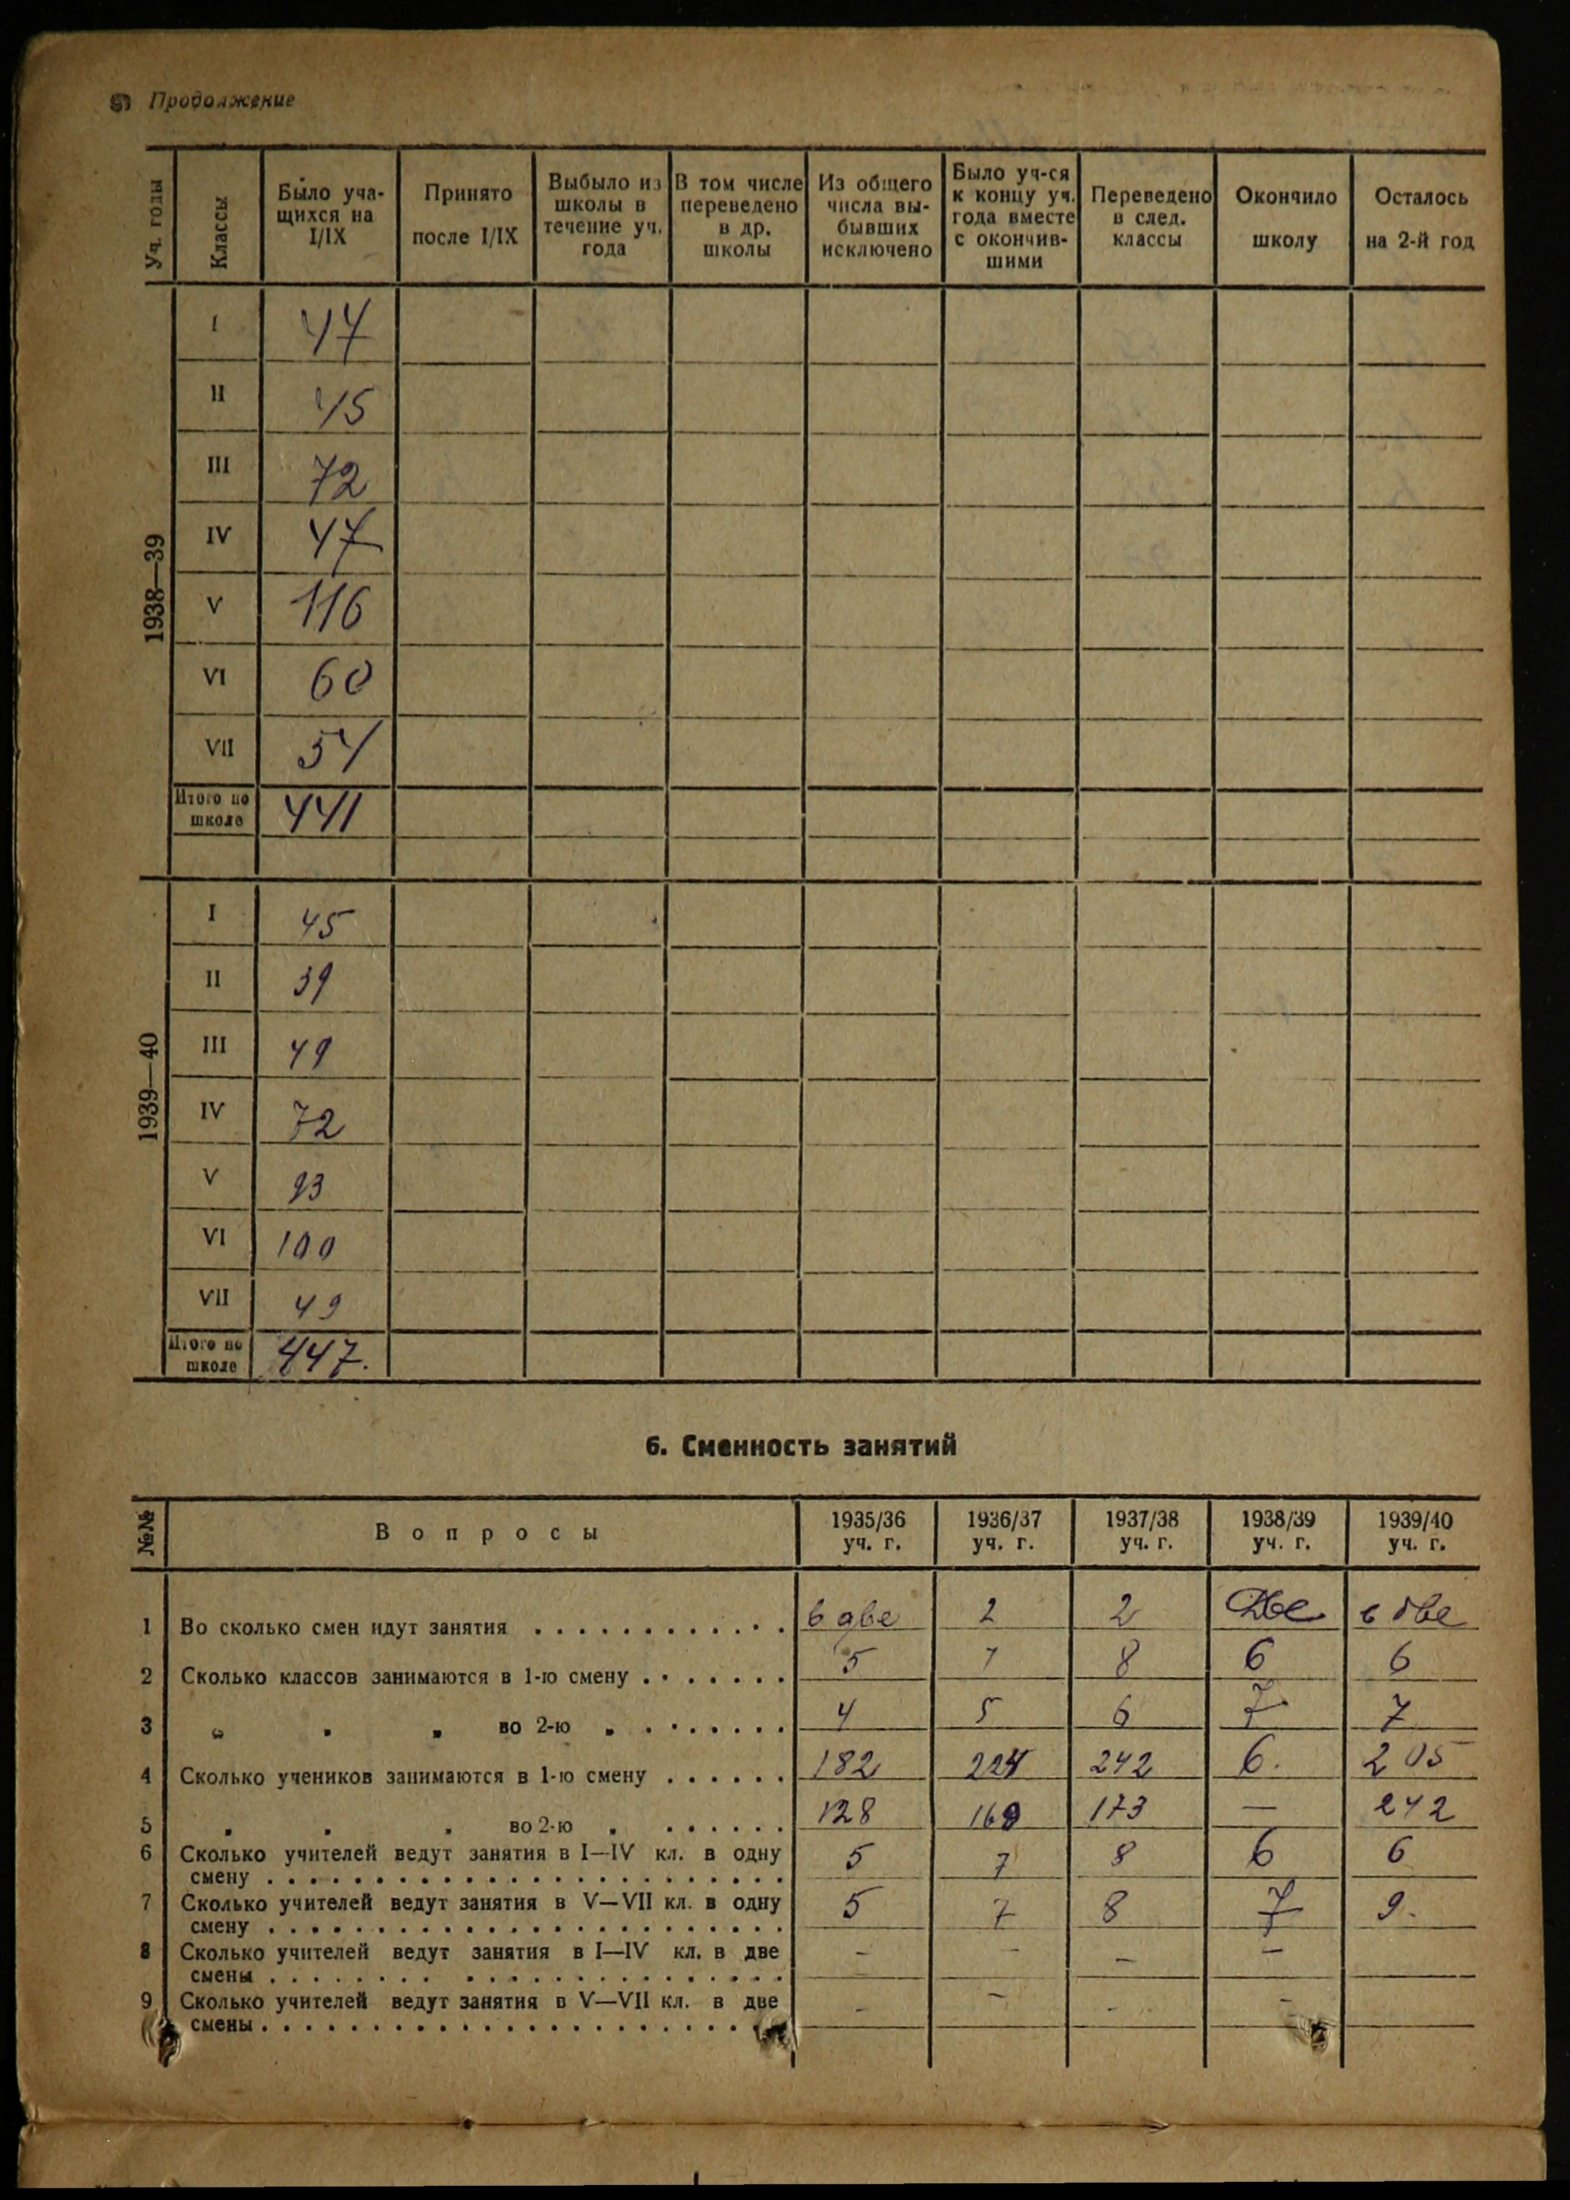 Продолжение
Уч. годы | Классы | Было уча-щихся на I/IX | Принято после I/IX | Выбыло из школы в течение уч. года | В том числе переведено в др. школы | Из общего числа вы-бывших исключено | Было уч-ся к концу уч. года вместе с окончив-шими | Переведено в след. классы | Окончило школу | Осталось на 2-й год
1938—39
I 47
II 45
III 72
IV 47
V 116
VI 60
VII 54
Итого по школе 441
1939—40
I 45
II 39
III 49
IV 72
V 93
VI 100
VII 49
Итого по школе 447.
6. Сменность занятий
№№ | Вопросы | 1935/36 уч. г. | 1936/37 уч. г. | 1937/38 уч. г. | 1938/39 уч. г. | 1939/40 уч. г.
1 Во сколько смен идут занятия . . . . . . . . . . . . в две 2 2 Две в две
2 Сколько классов занимаются в 1-ю смену . . . . . . . 5 7 8 6 6
3 „ „ „ во 2-ю „ . . . . . . . 4 5 6 7 7
4 Сколько учеников занимаются в 1-ю смену . . . . . . 182 224 242 6. 205
5 „ „ „ во 2-ю „ . . . . . . 128 169 173 — 242
6 Сколько учителей ведут занятия в I—IV кл. в одну
смену . . . . . . . . . . . . . . . . . . . . 5 7 8 6 6
7 Сколько учителей ведут занятия в V—VII кл. в одну
смену . . . . . . . . . . . . . . . . . . . . 5 7 8 7 9.
8 Сколько учителей ведут занятия в I—IV кл. в две
смены . . . . . . . . . . . . . . . . . . . . – – – –
9 Сколько учителей ведут занятия в V—VII кл. в две
смены . . . . . . . . . . . . . . . . . . . . – – – –